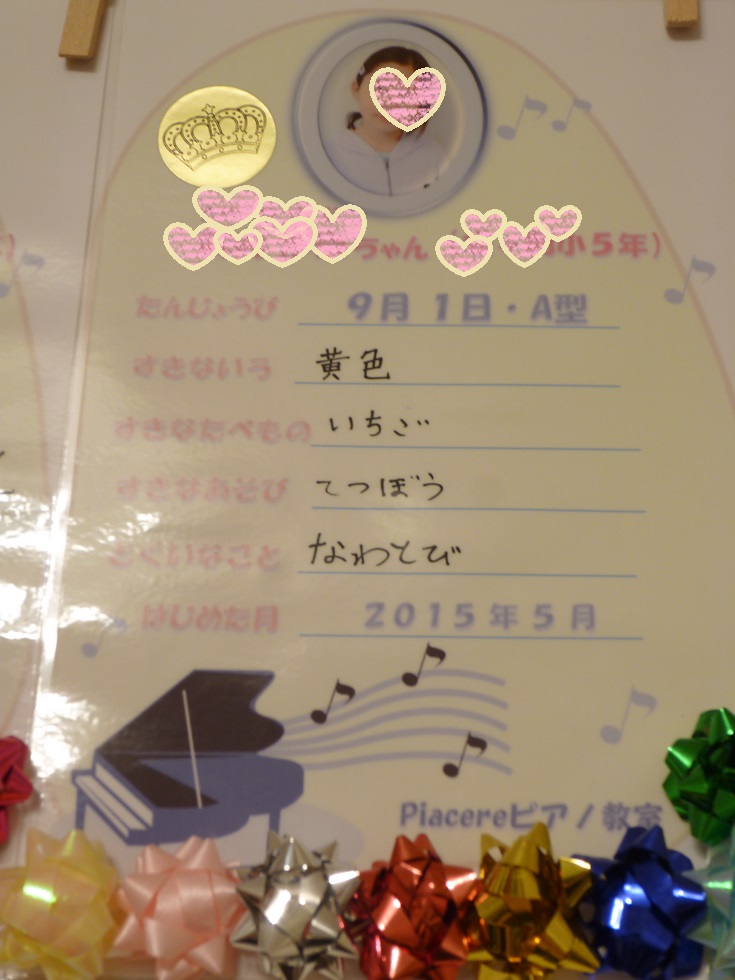 ちゃん 小5年)
たんじょうび 9月 1日・A型
すきないろ 黄色
すきなたべもの いちご
すきなあそび てつぼう
とくいなこと なわとび
はじめた月 2015年5月
Piacereピアノ教室